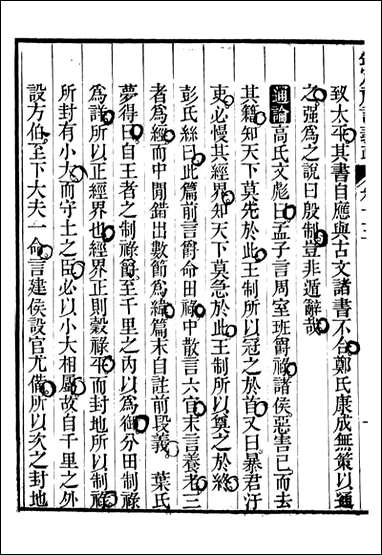 致太平其書自應與古文諸書不合鄭氏康成無策以通
之强為之說曰殷制豈非遁辭哉
通論高氏文彪曰孟子言周室班爵祿諸侯惡害已而去
其籍知天下莫先於此王制所以冠之於首又曰暴君汙
吏必慢其經界知天下莫急於此王制所以奠之於終
彭氏絲曰此篇前言爵命田祿中散言六官末言養老三
者為經而中閒錯出數節為緯篇末自註前段義 葉氏
夢得曰自王者之制祿爵至千里之內以為御分田制祿
為詳所以正經界也經界正則穀祿平而封地所以制祿
所封有小大而守土之臣必以小大相屬故自千里之外
設方伯至下大夫一命言建侯設官尤備所以次之封地